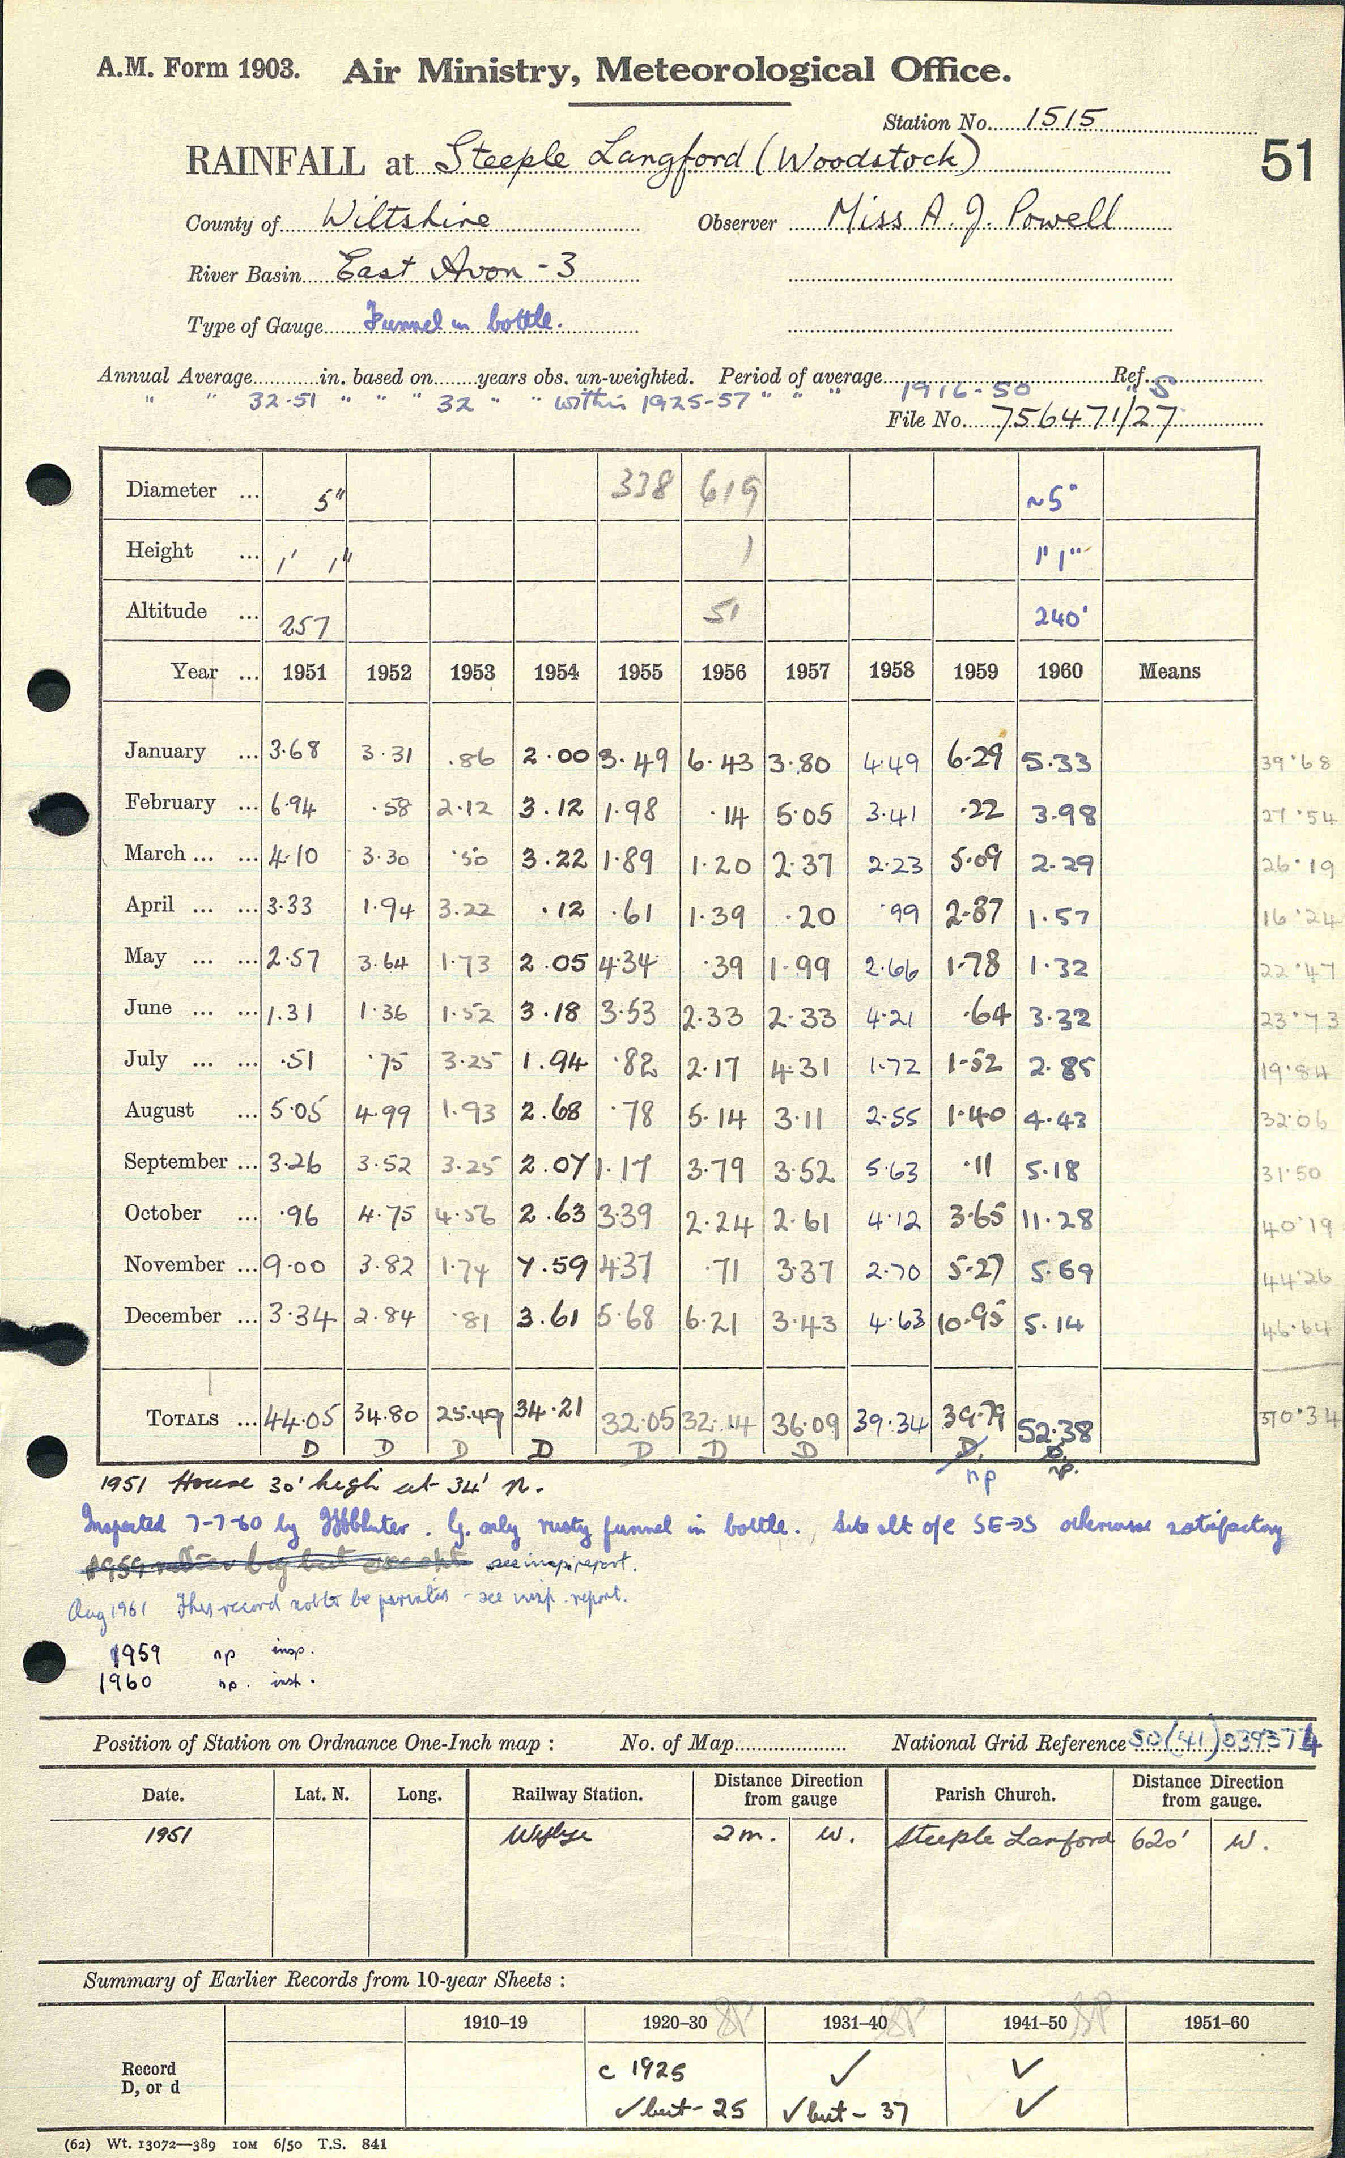 A.M. Form 1903. Air Ministry, Meteorological Office.
Station No. 1515
51
RAINFALL at Steeple Langford (Woodstock)
County of Wiltshire Observer Miss A. J. Powell
River Basin East Avon - 3
Type of Gauge Funnel in bottle.
Annual Average in. based on years obs. un-weighted. Period of average 1916-50 Ref. S
" " 32.51 " " " 32 " " within 1925-57 " " "
File No. 756471/27
Diameter ... 5" 338 619 ~5"
Height ... 1' 1" 1 1' 1"
Altitude ... 257 51 240'
Year ... 1951 1952 1953 1954 1955 1956 1957 1958 1959 1960 Means
January ... 3.68 3.31 .86 2.00 3.49 6.43 3.80 4.49 6.29 5.33 39.68
February ... 6.94 .58 2.12 3.12 1.98 .14 5.05 3.41 .22 3.98 27.54
March ... ... 4.10 3.30 .50 3.22 1.89 1.20 2.37 2.23 5.09 2.29 26.19
April ... ... 3.33 1.94 3.22 .12 .61 1.39 .20 .99 2.87 1.57 16.24
May ... ... 2.57 3.64 1.73 2.05 4.34 .39 1.99 2.66 1.78 1.32 22.47
June ... ... 1.31 1.36 1.52 3.18 3.53 2.33 2.33 4.21 .64 3.32 23.73
July ... ... .51 .75 3.25 1.94 .82 2.17 4.31 1.72 1.52 2.85 19.84
August ... 5.05 4.99 1.93 2.68 .78 5.14 3.11 2.55 1.40 4.43 32.06
September ... 3.26 3.52 3.25 2.07 1.17 3.79 3.52 5.63 .11 5.18 31.50
October ... .96 4.75 4.56 2.63 3.39 2.24 2.61 4.12 3.65 11.28 40.19
November ... 9.00 3.82 1.74 7.59 4.37 .71 3.37 2.70 5.27 5.69 44.26
December ... 3.34 2.84 .81 3.61 5.68 6.21 3.43 4.63 10.95 5.14 46.64
TOTALS ... 44.05 34.80 25.49 34.21 32.05 32.14 36.09 39.34 39.79 52.38 370.34
D D D D D D D D. D.
np np.
1951 House 30' high at 34' N.
Inspected 7-7-60 by . G. only rusty funnel in bottle. Site alt o/c SE→S otherwise satisfactory
see insp. report.
Aug 1961 This record not to be - see insp. report.
1959 np insp.
1960 np. inst.
Position of Station on Ordnance One-Inch map : No. of Map National Grid Reference SU (41) 039374
Date. Lat. N. Long. Railway Station. Distance Direction from gauge Parish Church. Distance Direction from gauge.
1951 Wylye 2 m. W. Steeple Lanford 620' W.
Summary of Earlier Records from 10-year Sheets :
1910–19 1920–30 SP 1931–40 SP 1941–50 SP 1951–60
Record D, or d
c 1925 ✓ ✓
✓ but - 25 ✓ but - 37 ✓
(62) Wt. 13072—389 IOM 6/50 T.S. 841